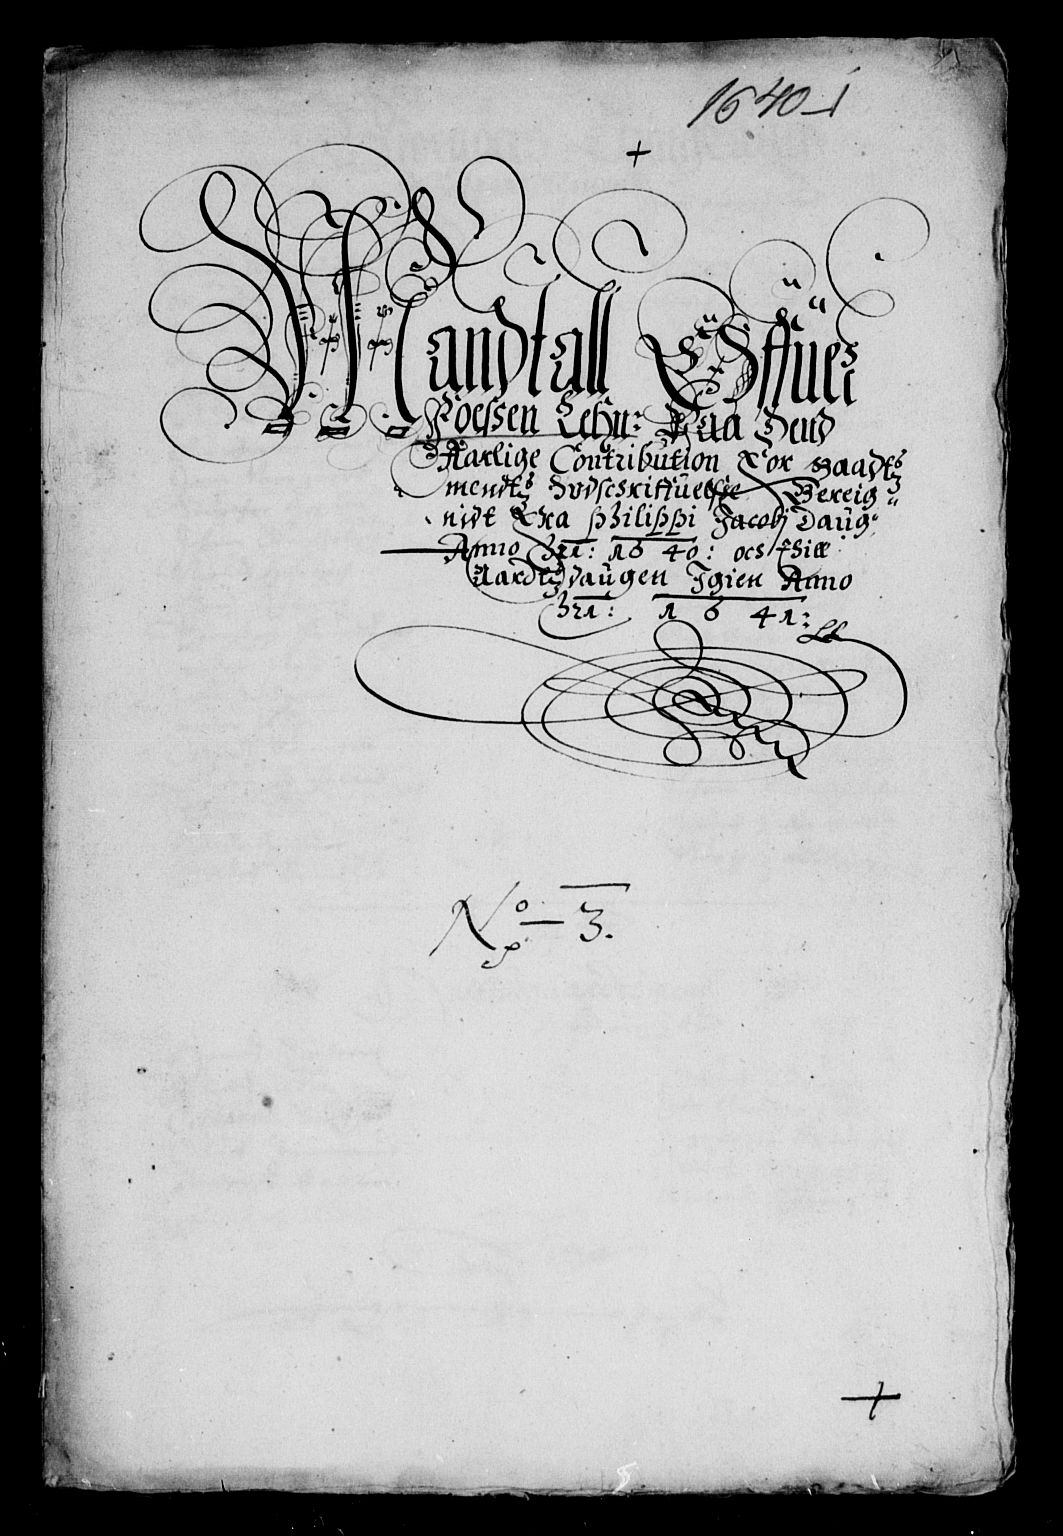 1640-1
+
Mandtall Offuer
Voessen Lehn: Paa Dend
Aarlige Contribution For Saadts
mendts Vdschriffuelsse Bereig"
nidt Fra Philippi Jacobj Daug:
Anno Xri: 1640: och till
Aardtzdaugen Jgien Anno
Xri: 1641:
No 3.
+